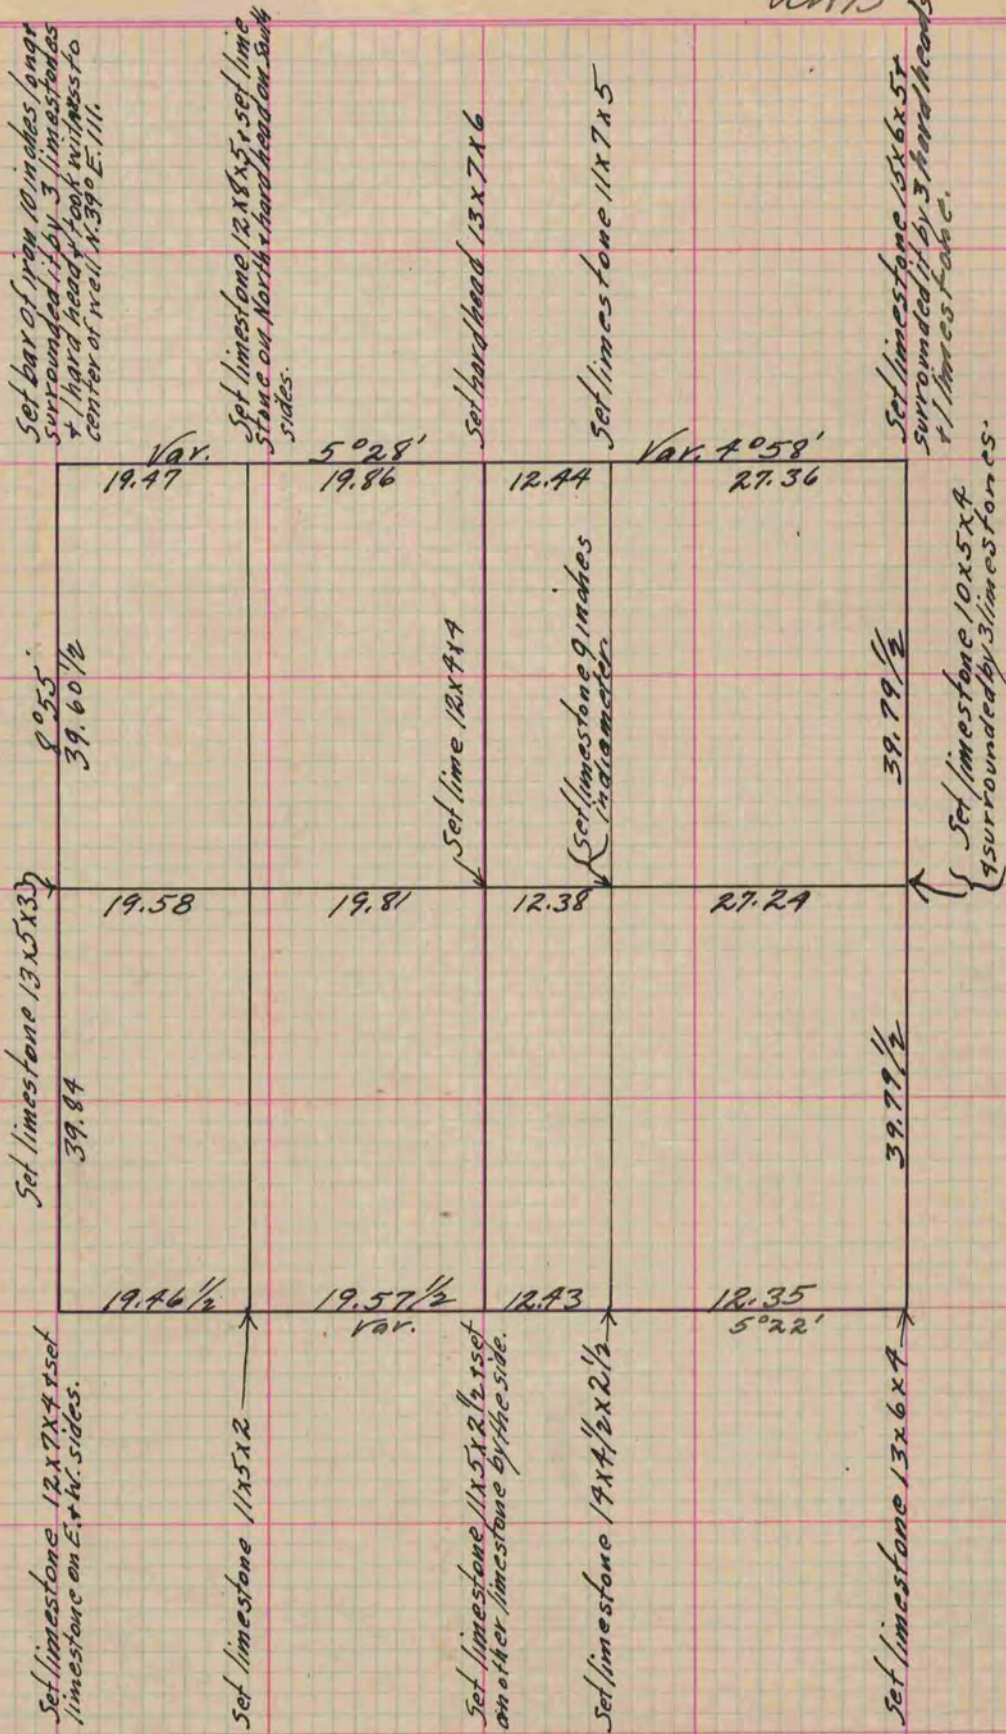 Set bar of iron 10 inches long &
surrounded it by 3 limestones
& 1 hard head & took witness to
center of well N.39° E. 111.
Set limestone 12x8x5 & set lime
stone on North & hard head on South
sides.
Set hard head 13x7x6
Set limestone 11x7x5
Set limestone 15x6x5 &
surrounded it by 3 hard heads
& 1 limestone.
Var. 5°28' Var. 4°58'
19.47 19.86 12.44 27.36
8°55'
39.60 1/2
Set lime 12x4x4
Set limestone 9 inches
in diameter.
39.79 1/2
Set limestone 10x5x4
& surrounded by 3 limestones.
Set limestone 13x5x3
19.58 19.81 12.38 27.24
39.84
39.79 1/2
19.46 1/2 19.57 1/2 12.43 12.35
Var. 5°22'
Set limestone 12x7x4 & set
limestone on E. & W. sides.
Set limestone 11x5x2
Set limestone 11x5x2 1/2 & set
another limestone by the side.
Set limestone 14x4 1/2x2 1/2
Set limestone 13x6x4